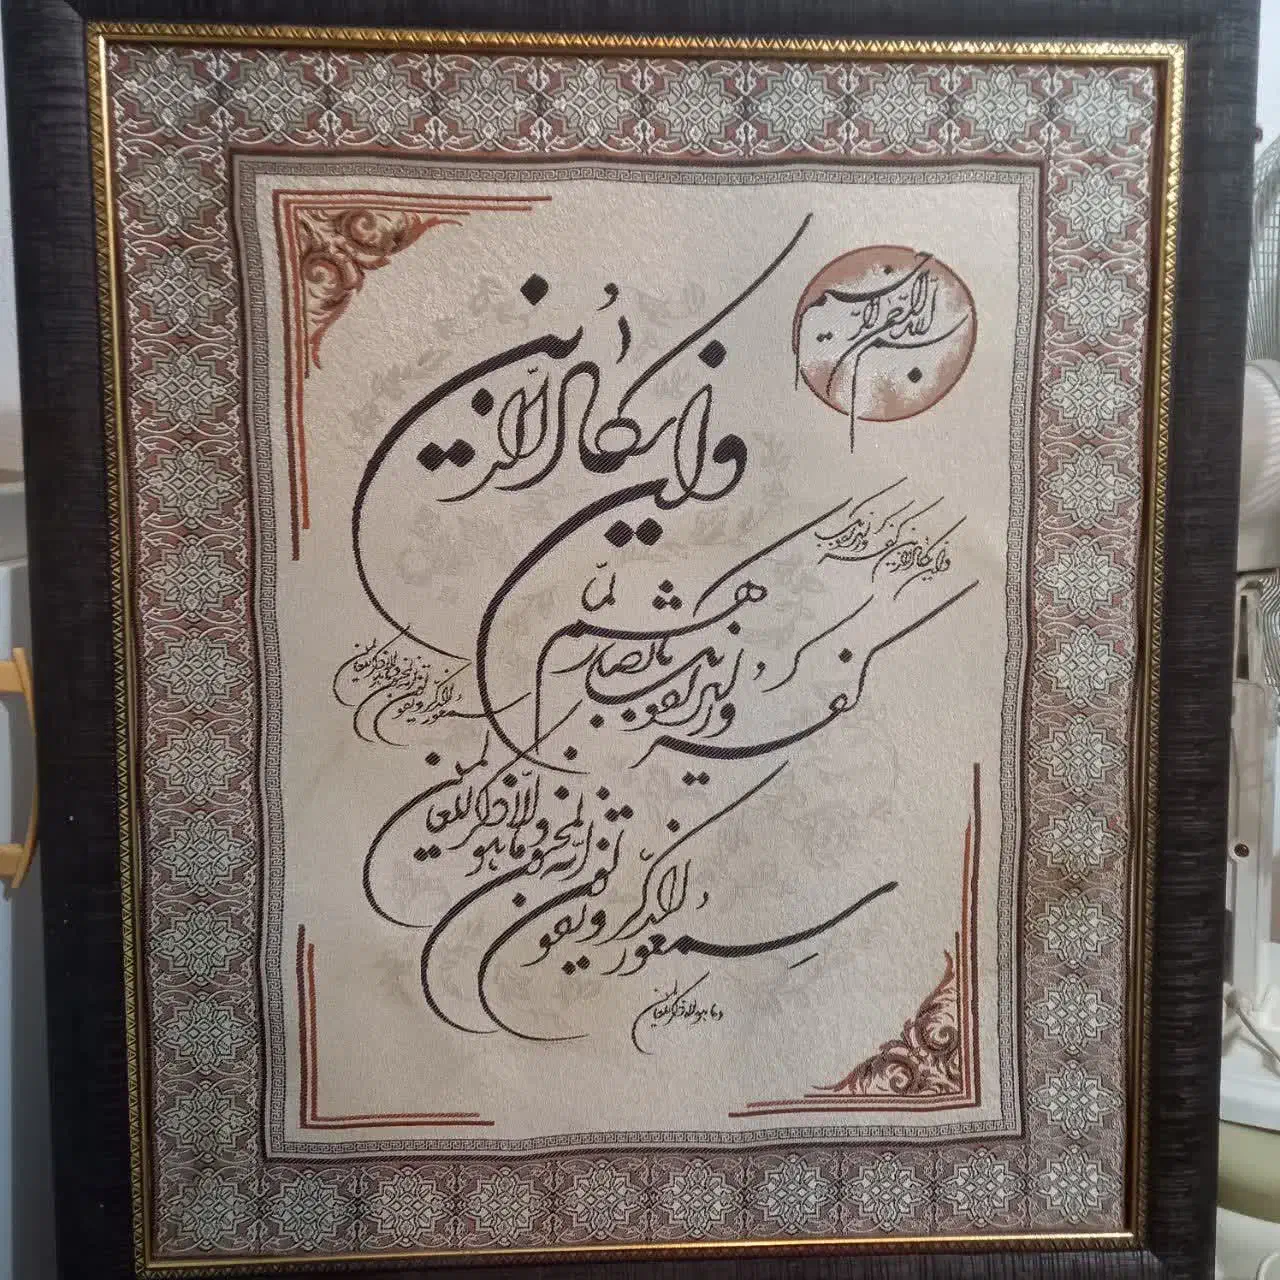 بسم الله الرحمن الرحیم
وان یکاد الذین
کفروا لیزلقونک بابصارهم لما
سمعوا الذکر و یقولون انه لمجنون وما هو الا ذکر للعالمین
وان یکاد الذین کفروا لیزلقونک
سمعوا الذکر و یقولون انه لمجنون وما هو الا ذکر للعالمین
وما هو الا ذکر للعالمین